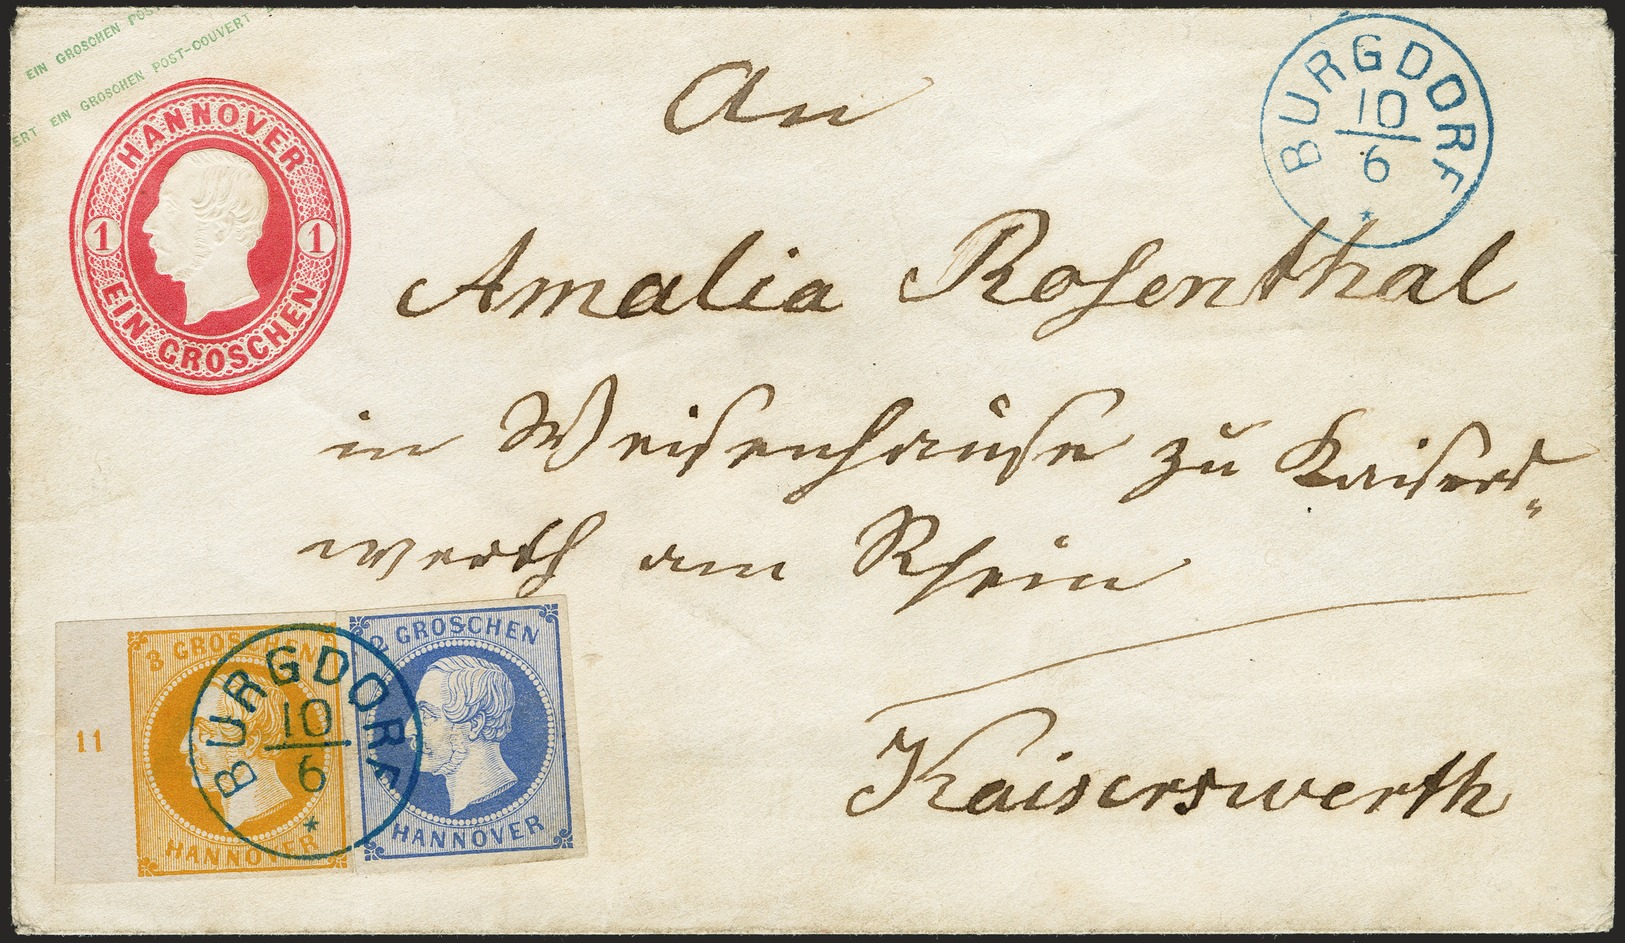 EIN GROSCHEN POST
ERT EIN GROSCHEN POST-COUVERT
HANNOVER
1 1
EIN GROSCHEN
BURGDORF
10
6
An
Amalia Rosenthal
in Weisenhause zu Kaisers„
werth am Rhein
Kaiserswerth
11
3 GROSCHEN
HANNOVER
2 GROSCHEN
HANNOVER
BURGDORF
10
6